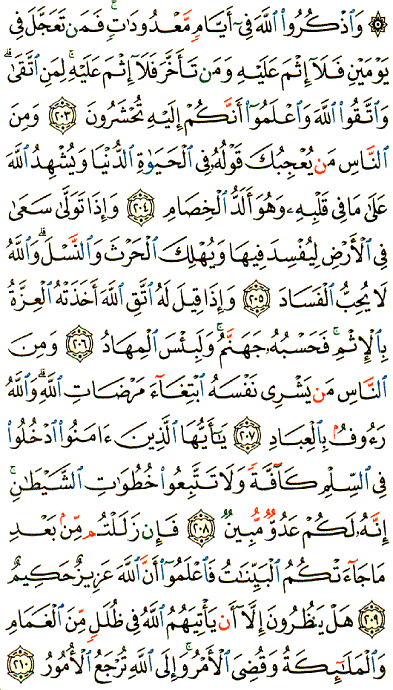 ۞ وَٱذۡكُرُواْ ٱللَّهَ فِيٓ أَيَّامٖ مَّعۡدُودَٰتٖۚ فَمَن تَعَجَّلَ فِي
يَوۡمَيۡنِ فَلَآ إِثۡمَ عَلَيۡهِ وَمَن تَأَخَّرَ فَلَآ إِثۡمَ عَلَيۡهِۚ لِمَنِ ٱتَّقَىٰۗ
وَٱتَّقُواْ ٱللَّهَ وَٱعۡلَمُوٓاْ أَنَّكُمۡ إِلَيۡهِ تُحۡشَرُونَ ٢٠٣ وَمِنَ
ٱلنَّاسِ مَن يُعۡجِبُكَ قَوۡلُهُۥ فِي ٱلۡحَيَوٰةِ ٱلدُّنۡيَا وَيُشۡهِدُ ٱللَّهَ
عَلَىٰ مَا فِي قَلۡبِهِۦ وَهُوَ أَلَدُّ ٱلۡخِصَامِ ٢٠٤ وَإِذَا تَوَلَّىٰ سَعَىٰ
فِي ٱلۡأَرۡضِ لِيُفۡسِدَ فِيهَا وَيُهۡلِكَ ٱلۡحَرۡثَ وَٱلنَّسۡلَۚ وَٱللَّهُ
لَا يُحِبُّ ٱلۡفَسَادَ ٢٠٥ وَإِذَا قِيلَ لَهُ ٱتَّقِ ٱللَّهَ أَخَذَتۡهُ ٱلۡعِزَّةُ
بِٱلۡإِثۡمِۚ فَحَسۡبُهُۥ جَهَنَّمُۖ وَلَبِئۡسَ ٱلۡمِهَادُ ٢٠٦ وَمِنَ
ٱلنَّاسِ مَن يَشۡرِي نَفۡسَهُ ٱبۡتِغَآءَ مَرۡضَاتِ ٱللَّهِۚ وَٱللَّهُ
رَءُوفُۢ بِٱلۡعِبَادِ ٢٠٧ يَٰٓأَيُّهَا ٱلَّذِينَ ءَامَنُواْ ٱدۡخُلُواْ
فِي ٱلسِّلۡمِ كَآفَّةٗ وَلَا تَتَّبِعُواْ خُطُوَٰتِ ٱلشَّيۡطَٰنِۚ
إِنَّهُۥ لَكُمۡ عَدُوّٞ مُّبِينٞ ٢٠٨ فَإِن زَلَلۡتُم مِّنۢ بَعۡدِ
مَا جَآءَتۡكُمُ ٱلۡبَيِّنَٰتُ فَٱعۡلَمُوٓاْ أَنَّ ٱللَّهَ عَزِيزٌ حَكِيمٌ
٢٠٩ هَلۡ يَنظُرُونَ إِلَّآ أَن يَأۡتِيَهُمُ ٱللَّهُ فِي ظُلَلٖ مِّنَ ٱلۡغَمَامِ
وَٱلۡمَلَٰٓئِكَةُ وَقُضِيَ ٱلۡأَمۡرُۚ وَإِلَى ٱللَّهِ تُرۡجَعُ ٱلۡأُمُورُ ٢١٠